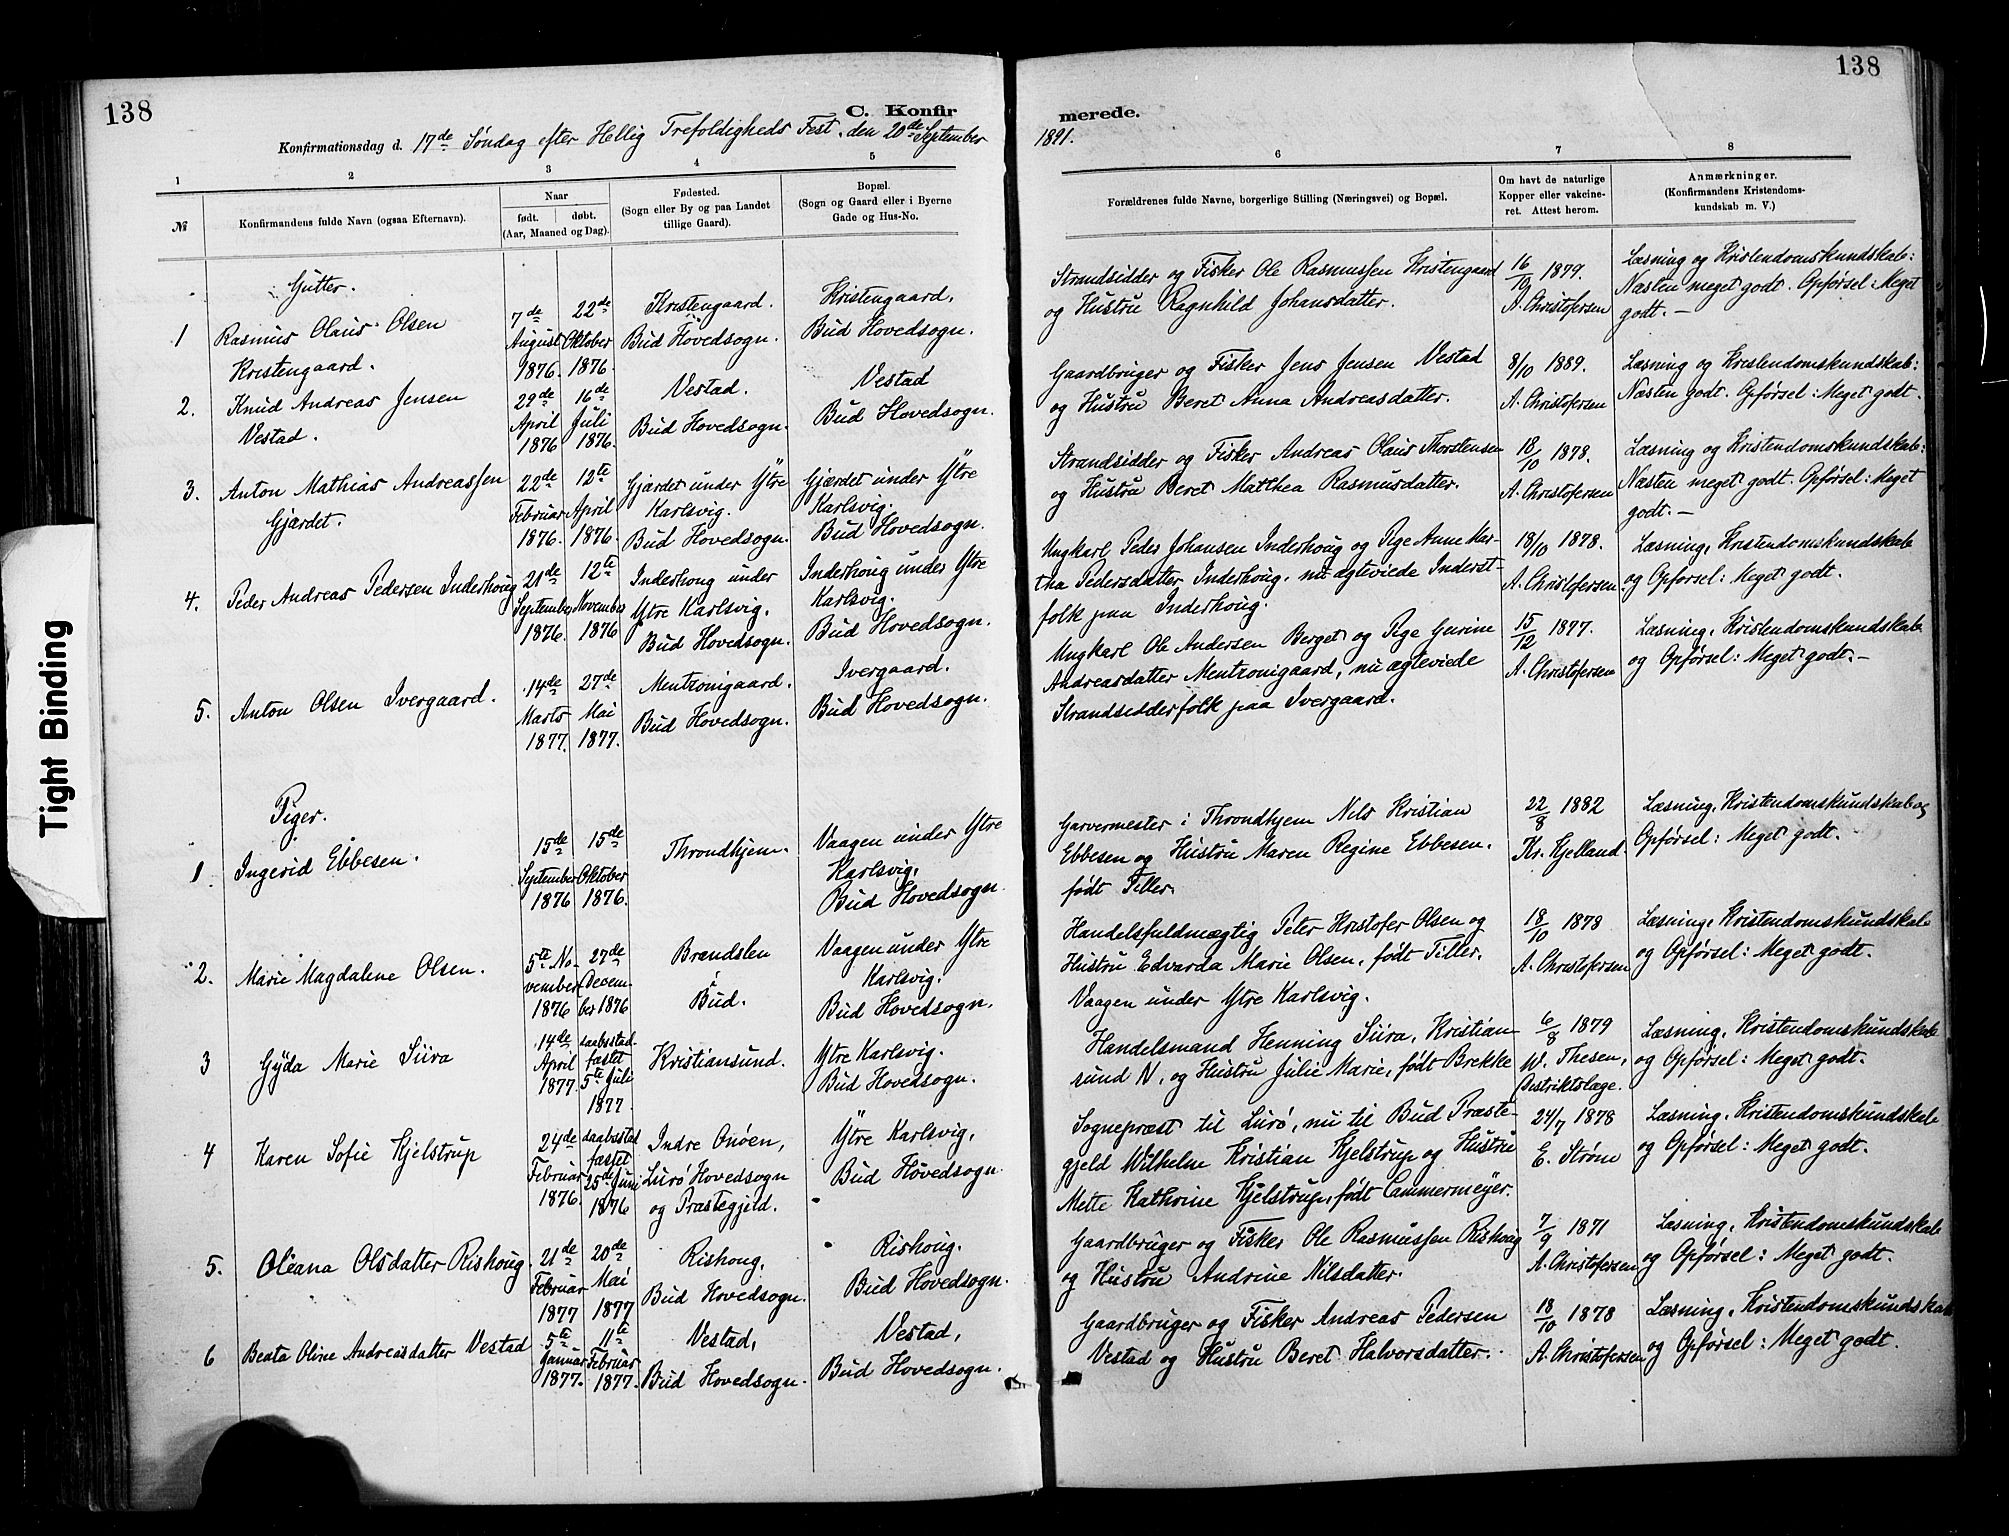 138
C. Konfirmerede.
138
Konfirmationsdag d. 17de Søndag efter Hellig Trefoldigheds Fest, den 20de September 1891.
1 2 3 4 5 6 7 8
№
Konfirmandens fulde Navn (ogsaa Efternavn).
Naar
født. døbt.
(Aar, Maaned og Dag).
Fødested.
(Sogn eller By og paa Landet
tillige Gaard).
Bopæl.
(Sogn og Gaard eller i Byerne
Gade og Hus-No.
Forældrenes fulde Navne, borgerlige Stilling (Næringsvei) og Bopæl.
Om havt de naturlige
Kopper eller vakcine-
ret. Attest herom.
Anmærkninger.
(Konfirmandens Kristendoms-
kundskab m. V.)
Gutter.
1
Rasmus Olaus Olsen
Kristengaard.
7de
August
1876.
22de
Oktober
1876.
Kristengaard.
Bud Hovedsogn.
Kristengaard,
Bud Hovedsogn.
Strandsidder og Fisker Ole Rasmussen Kristengaard
og Hustru Ragnhild Johansdatter.
16/10 1879.
A. Christofersen
Læsning og Kristendomskundskab:
Næsten meget godt. Opførsel: Meget
godt. —
2.
Knud Andreas Jensen
Vestad.
29de
April
1876
16de
Juli
1876.
Vestad.
Bud Hovedsogn.
Vestad
Bud Hovedsogn.
Gaardbruger og Fisker Jens Jensen Vestad
og Hustru Beret Anna Andreasdatter.
8/10 1889.
A. Christofersen
Læsning og Kristendomskundskab:
Næsten godt. Opførsel: Meget godt.
3.
Anton Mathias Andreassen
Gjærdet.
22de
Februar
1876.
12te
April
1876.
Gjærdet under Ytre
Karlsvig.
Bud Hovedsogn.
Gjærdet under Ytre
Karlsvig.
Bud Hovedsogn.
Strandsidder og Fisker Andreas Olaus Thorstensen
og Hustru Beret Matthea Rasmusdatter.
18/10 1878.
A. Christofersen
Læsning og Kristendomskundskab:
Næsten meget godt. Opførsel: Meget
godt. —
4.
Peder Andreas Pedersen Inderhoug
21de
September
1876.
12te
November
1876
Inderhoug under
Ytre Karlsvig.
Bud Hovedsogn.
Inderhoug under Ytre
Karlsvig.
Bud Hovedsogn.
Ungkarl Peder Johansen Inderhoug og Pige Anne Mar-
tha Pedersdatter Inderhoug, nu ægteviede Inderst-
folk paa Inderhoug.
18/10 1878.
A. Christofersen.
Læsning, Kristendomskundskab
og Opførsel: Meget godt.
5.
Anton Olsen Ivergaard.
14de
Marts
1877.
27de
Mai
1877.
Mentzonigaard.
Bud Hovedsogn.
Ivergaard.
Bud Hovedsogn.
Ungkarl Ole Andersen Berget og Pige Gurine
Andreasdatter Mentzonigaard, nu ægteviede
Strandsidderfolk paa Ivergaard.
15/12 1877.
A. Christofersen
Læsning, Kristendomskundskab
og Opførsel: Meget godt. —
Piger.
1
Ingerid Ebbesen.
15de
September
1876
15de
Oktober
1876.
Throndhjem.
Vaagen under Ytre
Karlsvig,
Bud Hovedsogn.
Garvermester i Throndhjem Nils Kristian
Ebbesen og Hustru Maren Regine Ebbesen,
født Tiller.
22/8 1882
Kr. Kjelland.
Læsning, Kristendomskundskab og
Opførsel: Meget godt.
2.
Marie Magdalene Olsen.
5te No-
vember
1876
27de
Decem-
ber 1876
Brandslen
i
Bud.
Vaagen under Ytre
Karlsvig.
Bud Hovedsogn.
Handelsfuldmægtig Peter Kristofer Olsen og
Hustru Edvarda Marie Olsen, født Tiller,
Vaagen under Ytre Karlsvig.
18/10 1878
A. Christofersen
Læsning, Kristendomskundskab
og Opførsel: Meget godt.
3
Gyda Marie Siira
14de
April
1877.
daabsstad-
fæstet
5te Juli
1877.
Kristiansund.
Ytre Karlsvig.
Bud Hovedsogn.
Handelsmand Henning Siira, Kristian-
sund N, og Hustru Julie Marie, født Brekke
6/8 1879
W. Thesen,
Distriktslæge.
Læsning, Kristendomskundskab
og Opførsel: Meget godt.
4
Karen Sofie Kjelstrup
24de
Februar
1876.
daabsstad
fæstet
25de Juni
1876
Indre Onøen,
Lurø Hovedsogn
og Præstegjeld.
Ytre Karlsvig,
Bud Hovedsogn.
Sognepræst til Lurø, nu til Bud Præste-
gjeld Wilhelm Kristian Kjelstrup og Hustru
Mette Kathrine Kjelstrup, født Cammermeyer.
24/7 1878
E. Strøm
Læsning, Kristendomskundskab
og Opførsel: Meget godt.
5.
Oleana Olsdatter Rishoug.
21de
Februar
1877
20de
Mai
1877
Rishoug,
Bud Hovedsogn.
Rishoug.
Bud Hovedsogn.
Gaardbruger og Fisker Ole Rasmussen Rishoug
og Hustru Andrine Nilsdatter.
7/9 1871
A. Christofersen
Læsning, Kristendomskundskab
og Opførsel: Meget godt.
6
Beata Oline Andreasdatter Vestad
5te
Januar
1877.
11te
Februar
1877.
Vestad,
Bud Hovedsogn.
Vestad,
Bud Hovedsogn.
Gaardbruger og Fisker Andreas Pedersen
Vestad og Hustru Beret Halvorsdatter.
18/10 1878
A. Christofersen
Læsning, Kristendomskundskab
og Opførsel: Meget godt.
Tight Binding